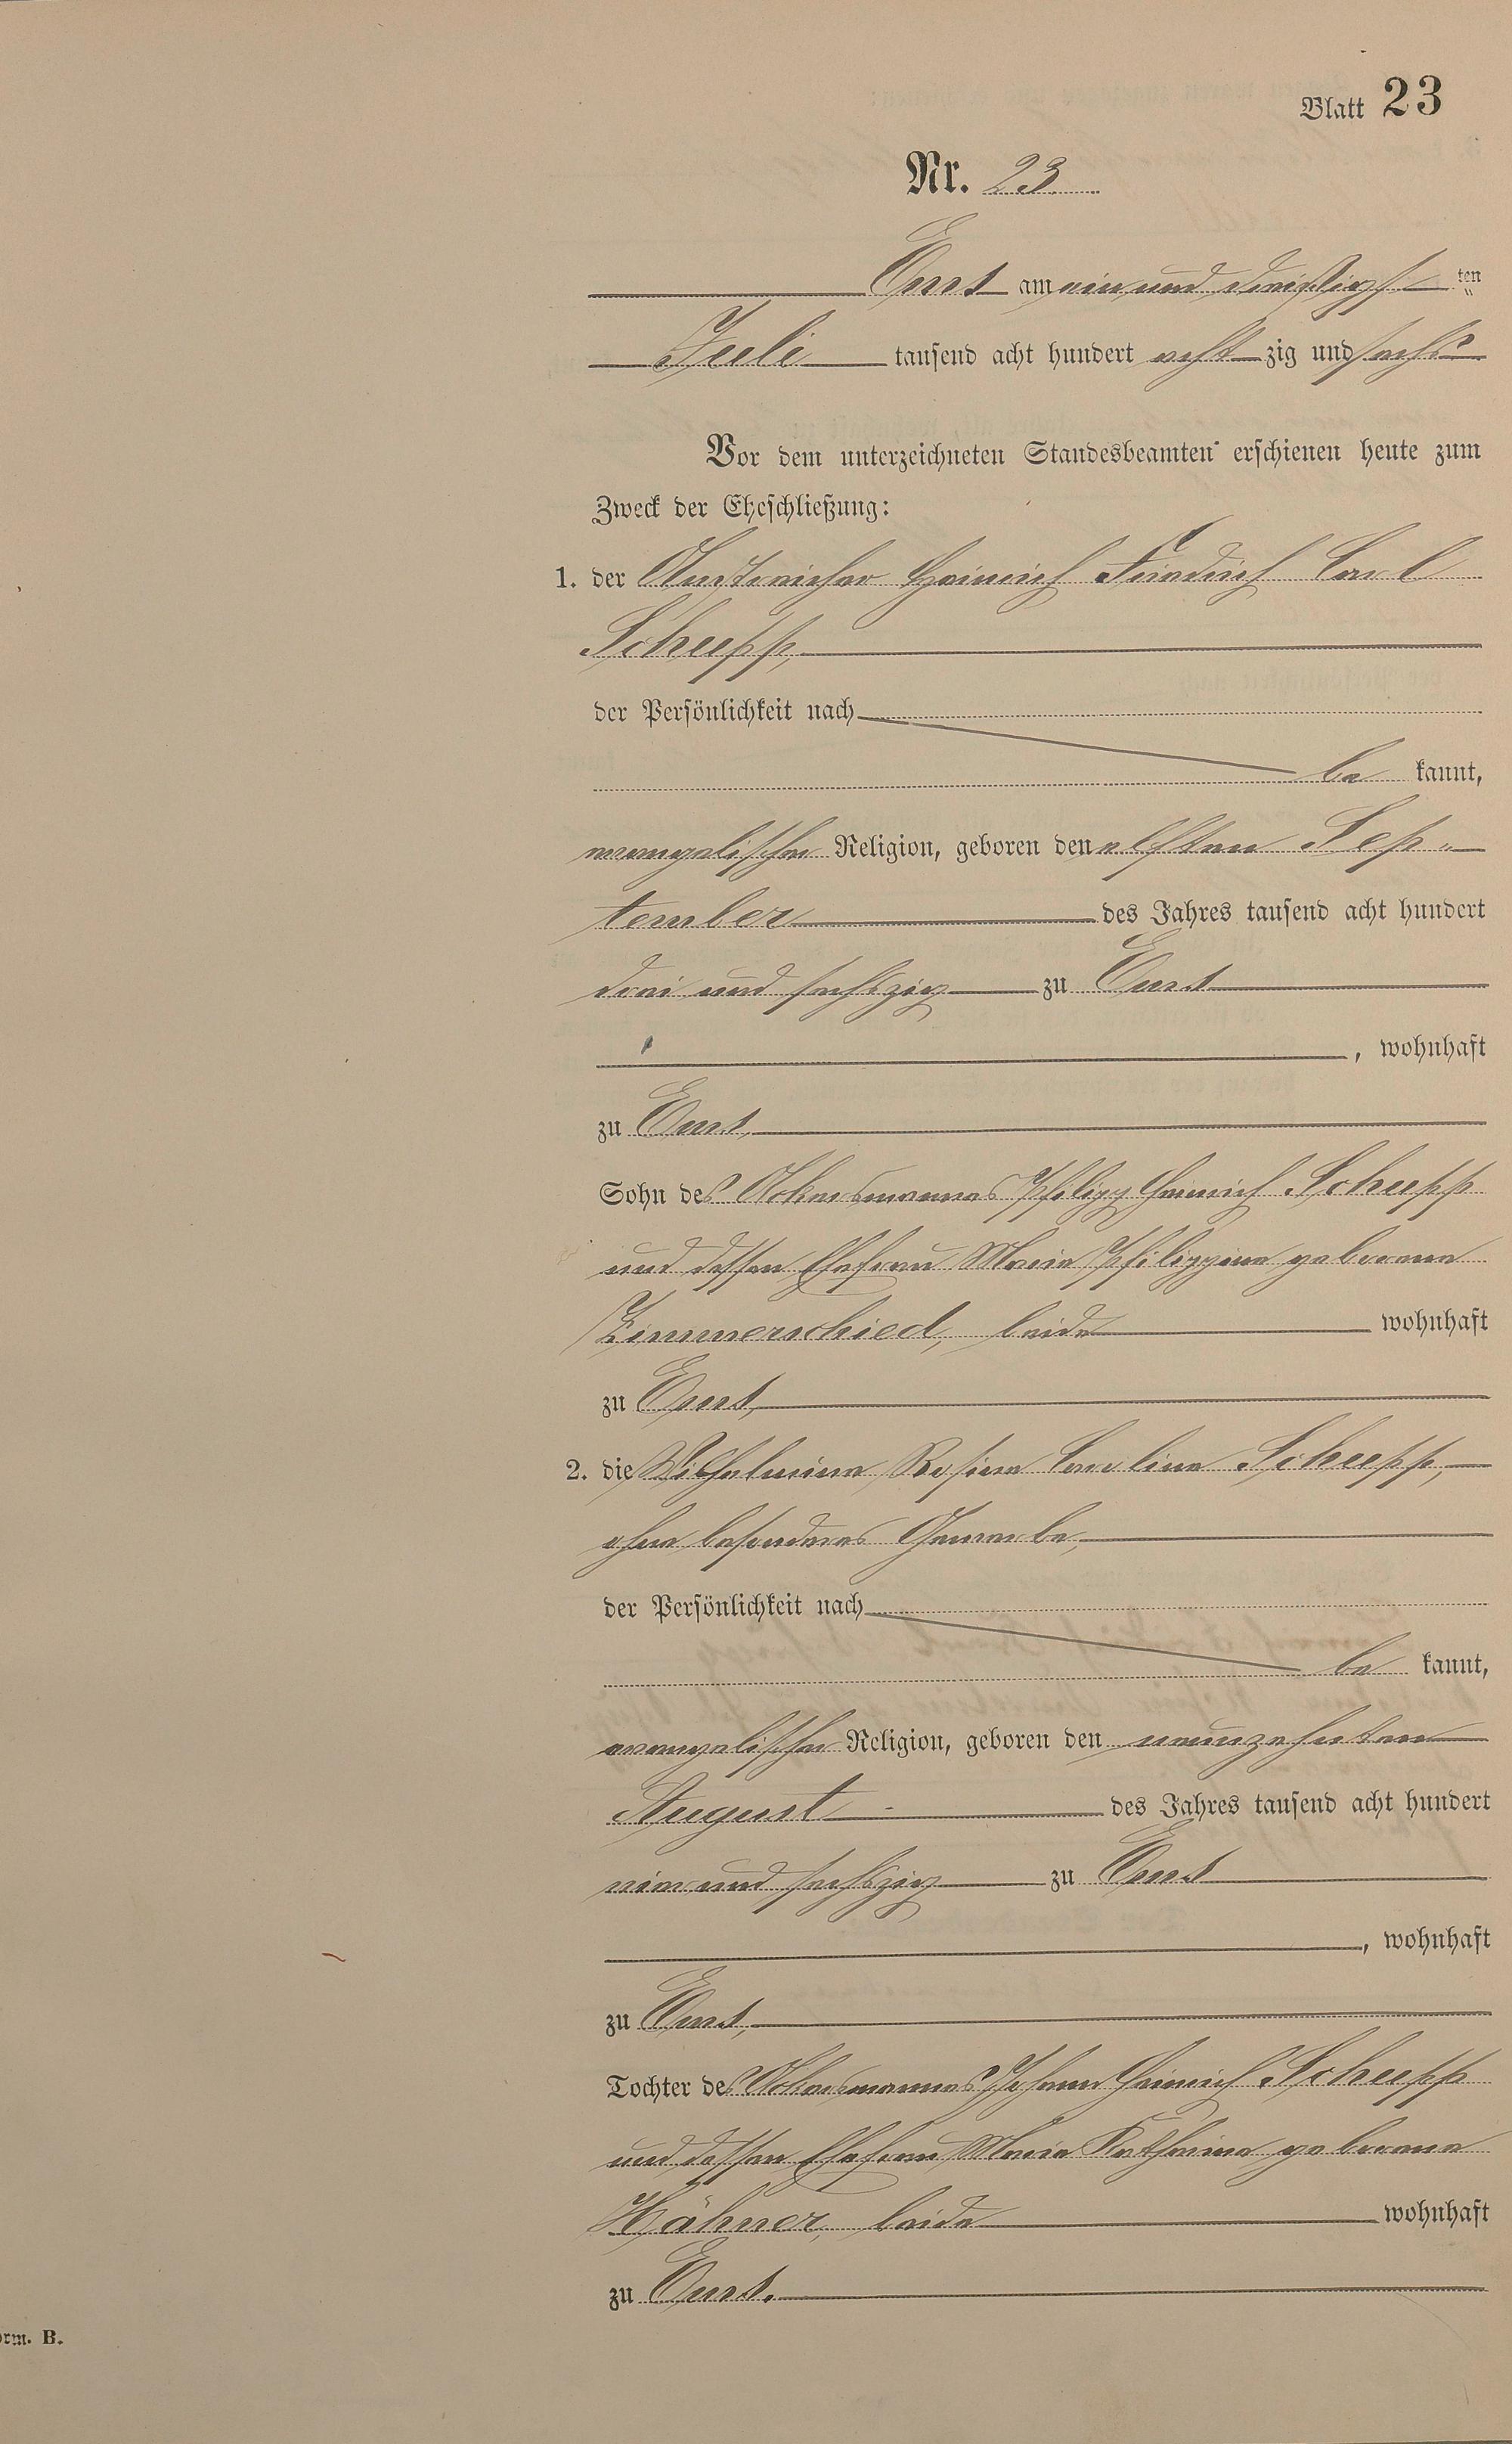 Blatt 23
Nr. 23.
Ems am ein und dreißigsten
Juli tausend acht hundert achtzig und sechs
Vor dem unterzeichneten Standesbeamten erschienen heute zum
Zweck der Eheschließung:
1. der Anstreicher Heinrich Friedrich Carl
Schupp,
der Persönlichkeit nach
be kannt,
evangelischer Religion, geboren den elften Sep-
tember des Jahres tausend acht hundert
drei und sechszig zu Ems
, wohnhaft
zu Ems,
Sohn des Ackersmannes Philipp Heinrich Schupp
und dessen Ehefrau Marie Philippine geborene
Zimmerschied, beide wohnhaft
zu Ems,
2. die Wilhelmine Rosine Caroline Schupp,
ohne besonderes Gewerbe,
der Persönlichkeit nach
be kannt,
evangelischer Religion, geboren den neunzehnten
August des Jahres tausend acht hundert
vier und sechszig zu Ems
, wohnhaft
zu Ems,
Tochter des Ackersmannes Johann Heinrich Schupp
und dessen Ehefrau Marie Katharine geborene
Hähner, beide wohnhaft
zu Ems.
orm. B.